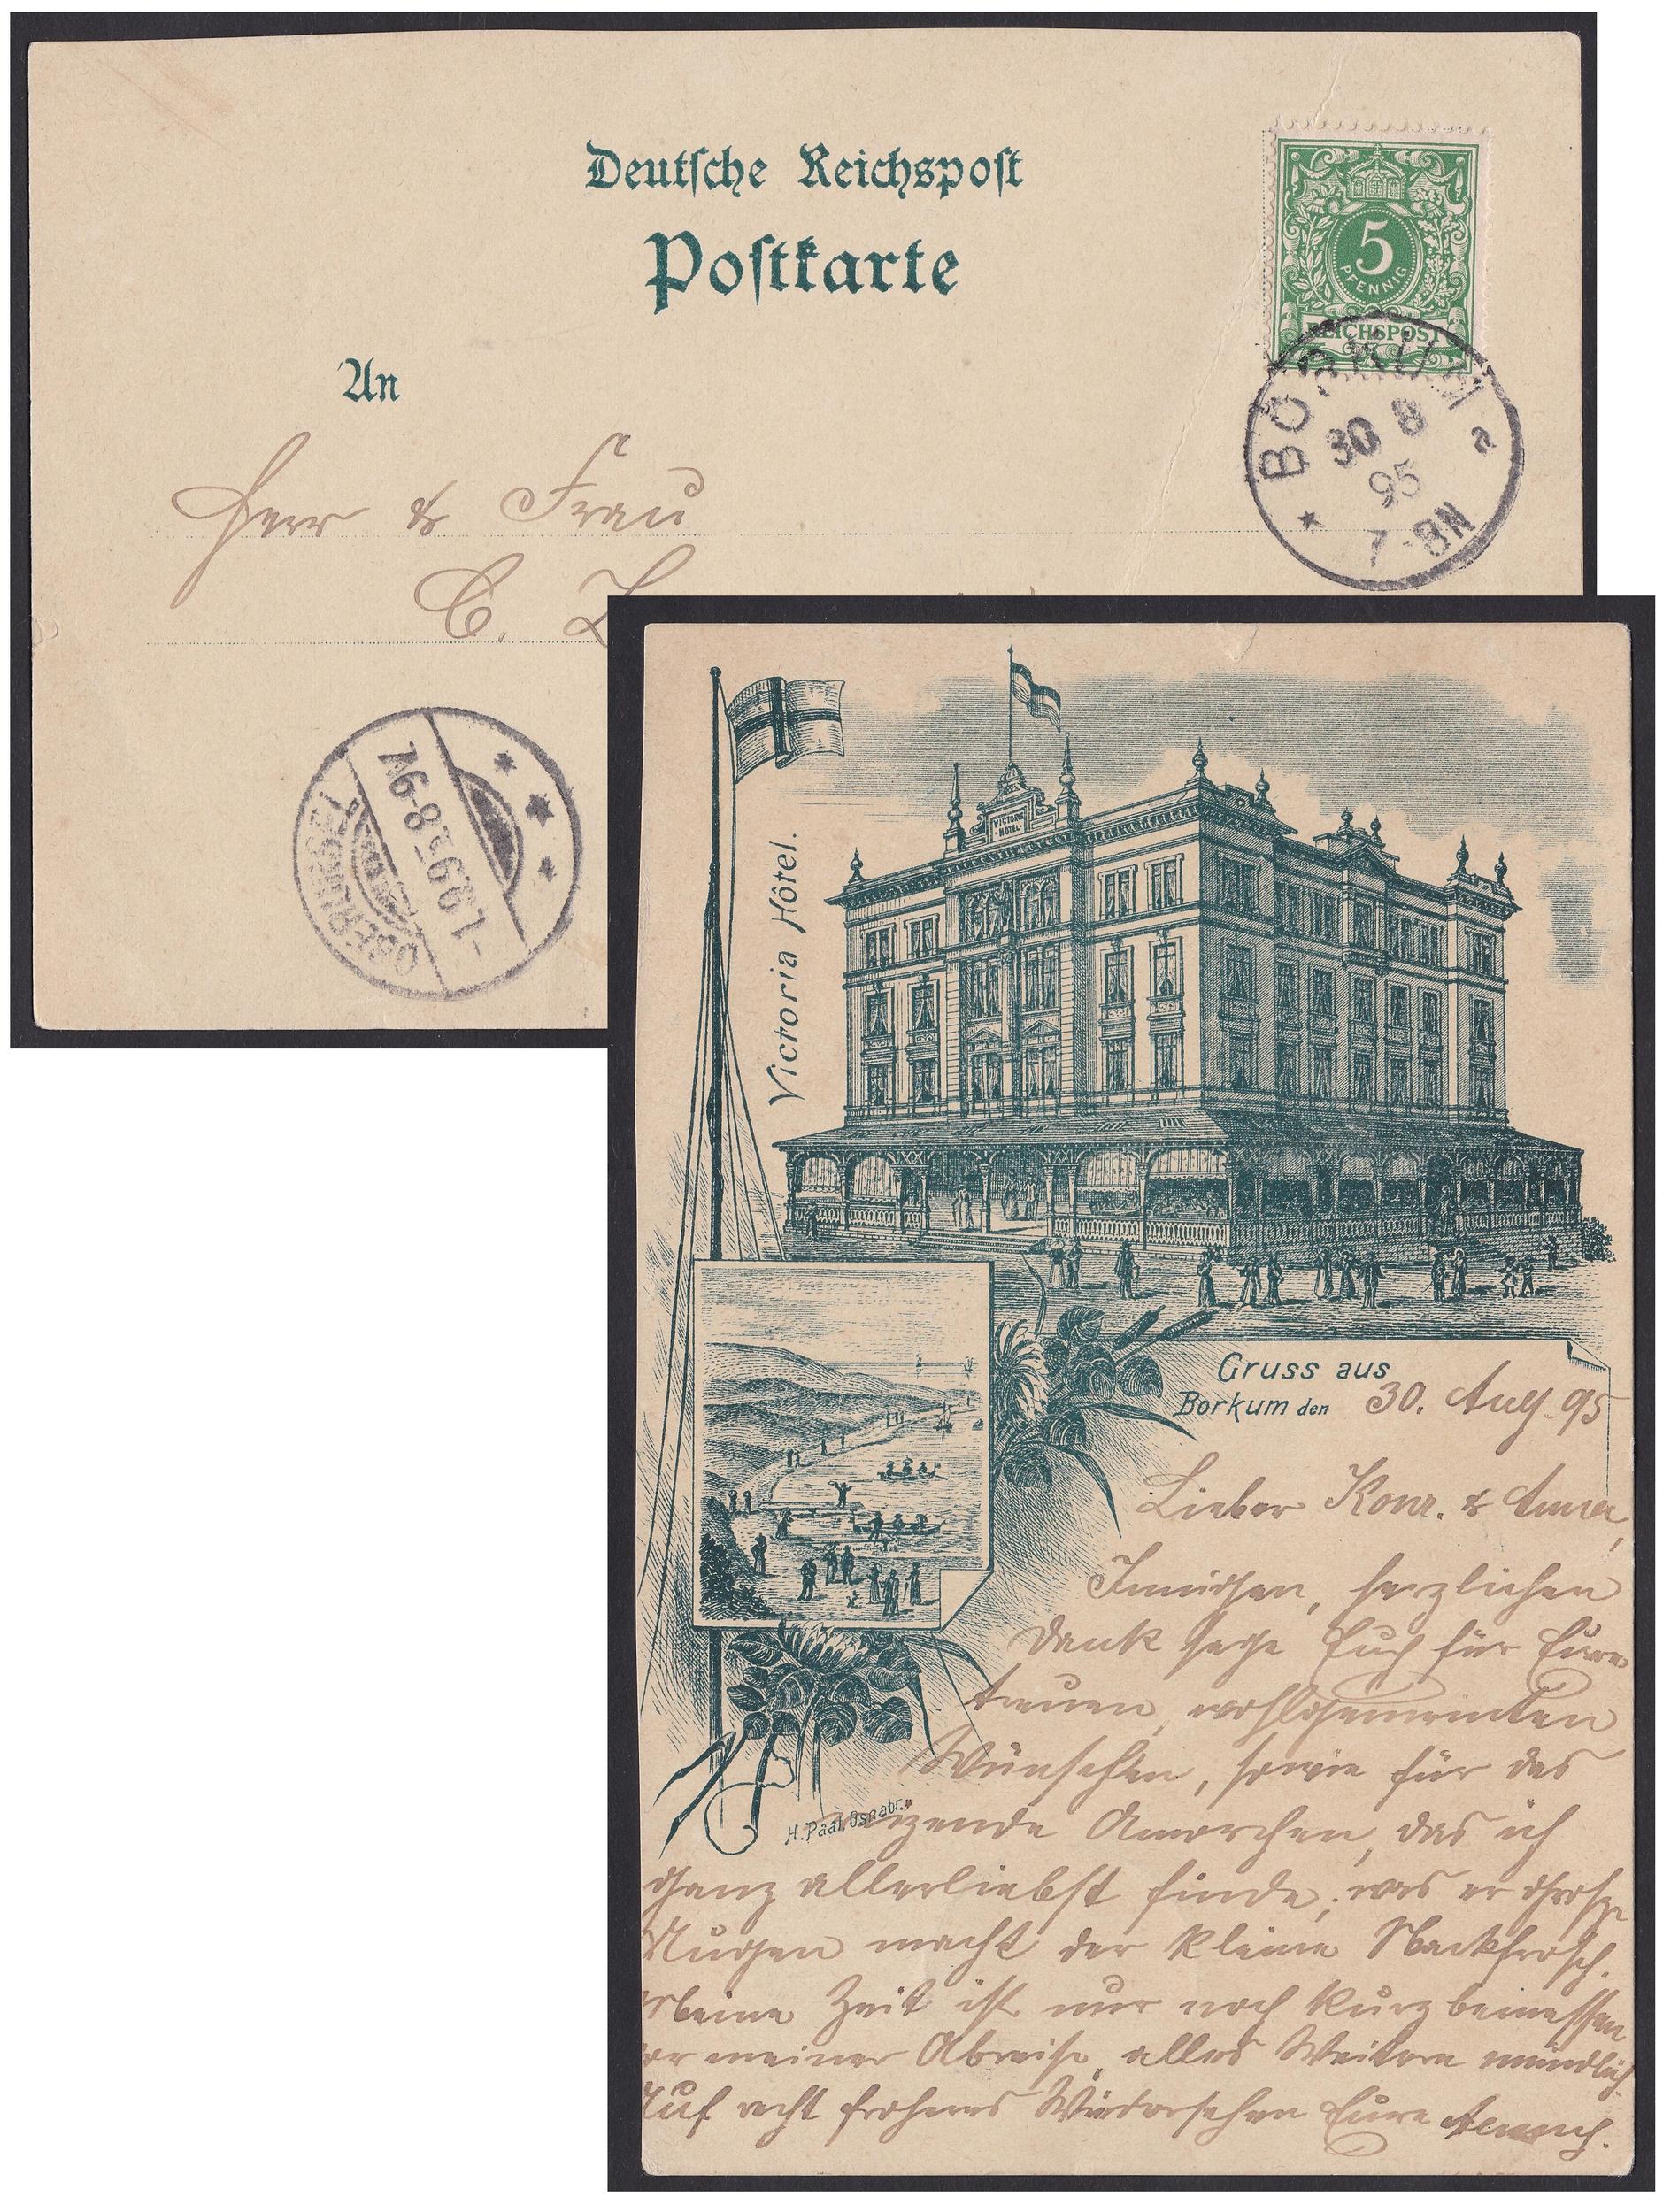 Deutsche Reichspost
Postkarte
An
5
PFENNIG
REICHSPOST
BORKUM a
30 8
95
7-8N
Herr & Frau
C. L
1.9.95
8-9V
Victoria Hôtel.
VICTORIA
HOTEL
Gruss aus
Borkum den 30. Aug. 95
Lieber Konr. & Anna,
Innigen, herzlichen
Dank sage Euch für Eure
treuen, wohlgemeinten
Wünschen, sowie für das
H. Paal, Osnabr.
das ich
ganz allerliebst finde, was er grosse
Augen macht der kleine Nackfrosch.
Meine Zeit ist nur noch kurz bemessen
vor meiner Abreise, alles Weitere mündlich
Auf recht frohes Wiedersehen Eure